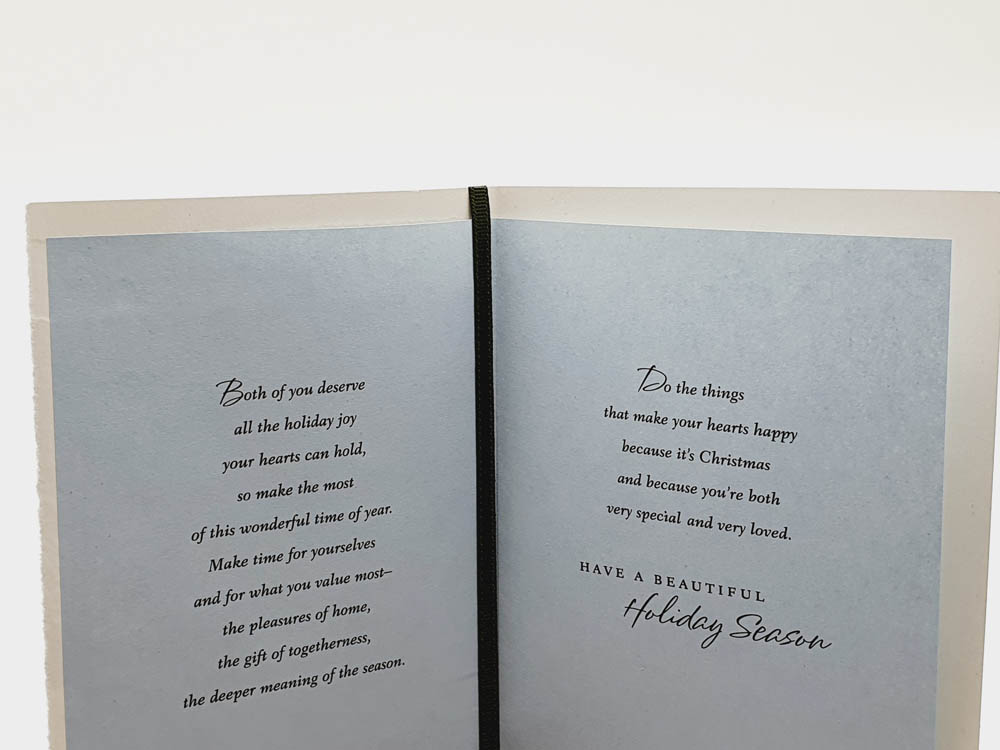 Both of you deserve
all the holiday joy
your hearts can hold,
so make the most
of this wonderful time of year.
Make time for yourselves
and for what you value most–
the pleasures of home,
the gift of togetherness,
the deeper meaning of the season.
Do the things
that make your hearts happy
because it's Christmas
and because you're both
very special and very loved.
HAVE A BEAUTIFUL
Holiday Season